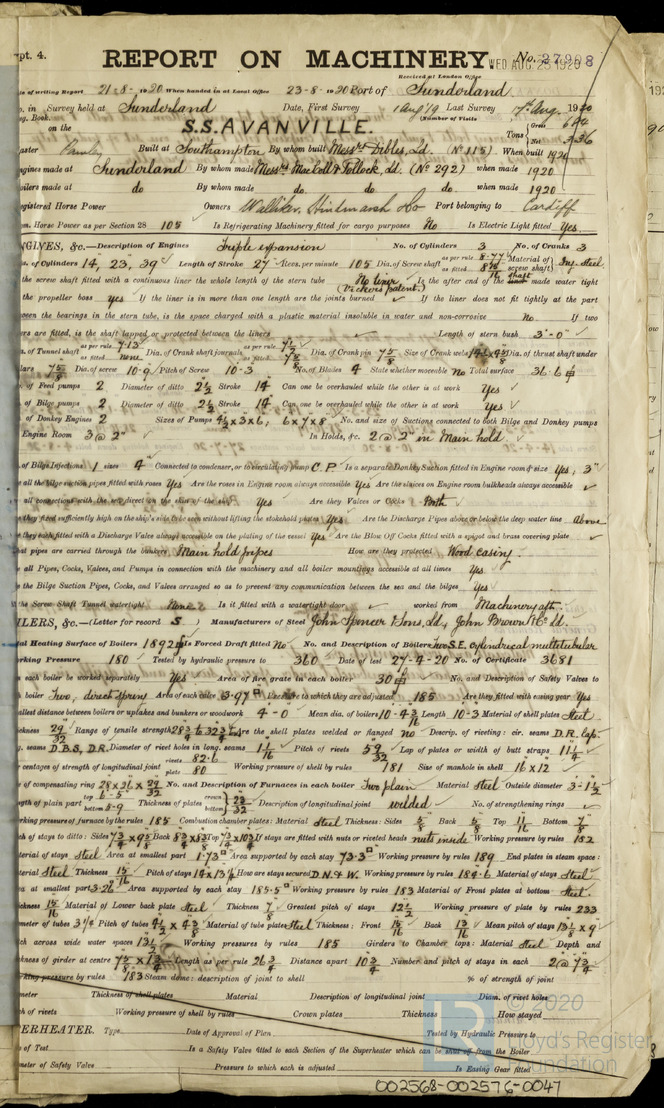 pt. 4.
REPORT ON MACHINERY.
No. 37908
WED AUG. 25 1920
Received at London Office
of writing Report 21-8-1920 When handed in at Local Office 23-8-1920 Port of Sunderland
in Survey held at Sunderland Date, First Survey Last Survey Aug. 1920
Book. (Number of Visits
on the S.S. AVANVILLE. Tons Gross Net 336
Built at Southampton By whom built Messrs Dibles, Ld. (No 115) When built 1920
Engines made at Sunderland By whom made Messrs MacColl & Pollock, Ld. (No 292) when made 1920
oilers made at do By whom made do do do when made 1920
egistered Horse Power Owners Port belonging to Cardiff
Horse Power as per Section 28 105 Is Refrigerating Machinery fitted for cargo purposes No Is Electric Light fitted Yes
NGINES, &c.—Description of Engines Triple expansion No. of Cylinders 3 No. of Cranks 3
of Cylinders 14, 23, 39 Length of Stroke 27 Revs. per minute 105 Dia. of Screw shaft as per rule 8.77 as fitted Material of screw shaft Ing. Steel
the screw shaft fitted with a continuous liner the whole length of the stern tube No liner (Vickers patent.) Is the after end of the liner shaft made water tight
the propeller boss yes If the liner is in more than one length are the joints burned If the liner does not fit tightly at the part
een the bearings in the stern tube, is the space charged with a plastic material insoluble in water and non-corrosive No If two
are fitted, is the shaft lapped or protected between the liners Length of stern bush 3'-0"
of Tunnel shaft as per rule 7.13 as fitted none Dia. of Crank shaft journals as per rule as fitted Dia. of Crank pin 7 5/8 Size of Crank webs Dia. of thrust shaft under
lars 7 5/8 Dia. of screw 10-9 Pitch of Screw 10-3 No. of Blades 4 State whether moveable No Total surface 36.6
of Feed pumps 2 Diameter of ditto 2 1/2 Stroke 14" Can one be overhauled while the other is at work Yes
of Bilge pumps 2 Diameter of ditto 2 1/2 Stroke 14" Can one be overhauled while the other is at work Yes
of Donkey Engines 2 Sizes of Pumps 4 1/2 x 3 x 6, 6 x 7 x 8 No. and size of Suctions connected to both Bilge and Donkey pumps
Engine Room 3 @ 2" In Holds, &c. 2 @ 2" in Main hold
of Bilge Injections 1 sizes 4" Connected to condenser, or to circulating pump C.P. Is a separate Donkey Suction fitted in Engine room & size Yes, 3"
all the bilge suction pipes fitted with roses Yes Are the roses in Engine room always accessible Yes Are the sluices on Engine room bulkheads always accessible
all connections with the sea direct on the skin of the ship Yes Are they Valves or Cocks Both
they fixed sufficiently high on the ship's side to be seen without lifting the stokehold plates Yes Are the Discharge Pipes above or below the deep water line Above
they each fitted with a Discharge Valve always accessible on the plating of the vessel Yes Are the Blow Off Cocks fitted with a spigot and brass covering plate
at pipes are carried through the bunkers Main hold pipes How are they protected Wood casing
all Pipes, Cocks, Valves, and Pumps in connection with the machinery and all boiler mountings accessible at all times Yes
the Bilge Suction Pipes, Cocks, and Valves arranged so as to prevent any communication between the sea and the bilges Yes
the Screw Shaft Tunnel watertight None Is it fitted with a watertight door, worked from Machinery aft.
ILERS, &c.—(Letter for record S) Manufacturers of Steel John Spencer & Sons, Ld., John Brown & Co Ld.
al Heating Surface of Boilers 1892 Is Forced Draft fitted No No. and Description of Boilers Two S.E. cylindrical multitubular
rking Pressure 180 Tested by hydraulic pressure to 360 Date of test 27-4-20 No. of Certificate 3681
each boiler be worked separately Yes Area of fire grate in each boiler 30 No. and Description of Safety Valves to
boiler Two, direct spring Area of each valve 3.97 Pressure to which they are adjusted 185 Are they fitted with easing gear Yes
allest distance between boilers or uptakes and bunkers or woodwork 4-0 Mean dia. of boilers Length 10-3 Material of shell plates Steel
ickness 29/32 Range of tensile strength Are the shell plates welded or flanged no Descrip. of riveting: cir. seams D.R. lap.
seams D.B.S, D.R. Diameter of rivet holes in long. seams 1 1/16 Pitch of rivets Lap of plates or width of butt straps 11 1/4
centages of strength of longitudinal joint rivets 82.6 plate 80 Working pressure of shell by rules 181 Size of manhole in shell 16 x 12
of compensating ring No. and Description of Furnaces in each boiler Two plain Material Steel Outside diameter 3-1 1/2
gth of plain part top 6-5 bottom 5-9 Thickness of plates crown bottom 23/32 Description of longitudinal joint welded No. of strengthening rings
rking pressure of furnace by the rules 185 Combustion chamber plates: Material Steel Thickness: Sides 5/8 Back 5/8 Top 11/16 Bottom 7/8
ch of stays to ditto: Sides Back Top If stays are fitted with nuts or riveted heads nuts inside Working pressure by rules 182
terial of stays Steel Area at smallest part 1.73 Area supported by each stay 73.3 Working pressure by rules 189 End plates in steam space:
terial Steel Thickness 15/16 Pitch of stays How are stays secured D.N. & W. Working pressure by rules 184.6 Material of stays Steel
ea at smallest part 3.26 Area supported by each stay 185.5 Working pressure by rules 183 Material of Front plates at bottom Steel
ickness 15/16 Material of Lower back plate Steel Thickness 7/8 Greatest pitch of stays 12 1/2 Working pressure of plate by rules 233
meter of tubes 3 1/4 Pitch of tubes 4 1/2 x 4 3/8 Material of tube plates Steel Thickness: Front 15/16 Back 13/16 Mean pitch of stays
ch across wide water spaces 13 1/2 Working pressures by rules 185 Girders to Chamber tops: Material Steel Depth and
ickness of girder at centre Length as per rule 26 3/4 Distance apart 10 3/4 Number and pitch of stays in each 2 @ 7 3/4
orking pressure by rules 183 Steam dome: description of joint to shell % of strength of joint
meter Thickness of shell plates Material Description of longitudinal joint Diam. of rivet holes
ch of rivets Working pressure of shell by rules Crown plates Thickness How stayed
ERHEATER. Type Date of Approval of Plan Tested by Hydraulic Pressure to
e of Test Is a Safety Valve fitted to each Section of the Superheater which can be shut off from the Boiler
meter of Safety Valve Pressure to which each is adjusted Is Easing Gear fitted
© 2020
Lloyd's Register
Foundation
002568-002576-0047